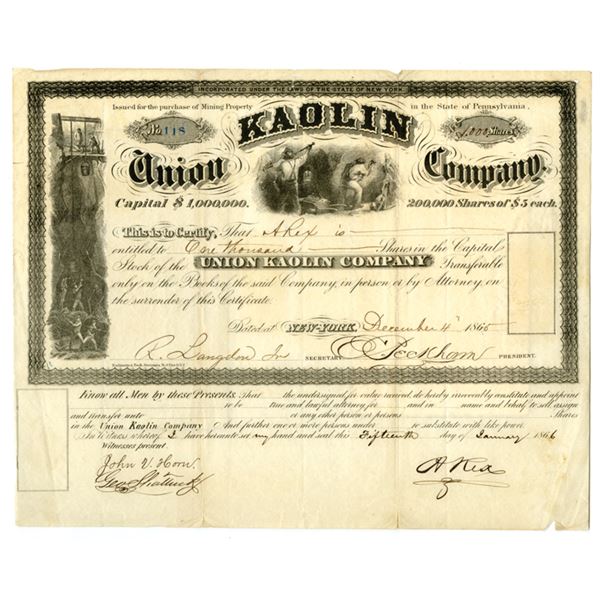 INCORPORATED UNDER THE LAWS OF THE STATE OF NEW YORK
Issued for the purchase of Mining Property in the State of Pennsylvania,
No. 118 KAOLIN 1,000 Shares
Union Company.
Capital $1,000,000. 200,000 Shares of $5 each.
This is to Certify, That A Rex is
entitled to One thousand Shares in the Capital
Stock of the UNION KAOLIN COMPANY Transferable
only on the Books of the said Company, in person or by Attorney, on
the surrender of this Certificate.
Dated at NEW-YORK, December 4th 1865
R. Langdon Jr SECRETARY. E Peckham PRESIDENT.
Know all Men by these Presents, That the undersigned for value received, do hereby irrevocably constitute and appoint
to be true and lawful attorney for and in name and behalf to sell assign
and transfer unto or any other person or persons Shares
in the Union Kaolin Company And further one or more persons under to substitute with like power.
In Witness whereof I have hereunto set my hand and seal this Fifteenth day of January 1866
Witnesses present
John V. Horn
Geo Shattuck A Rex